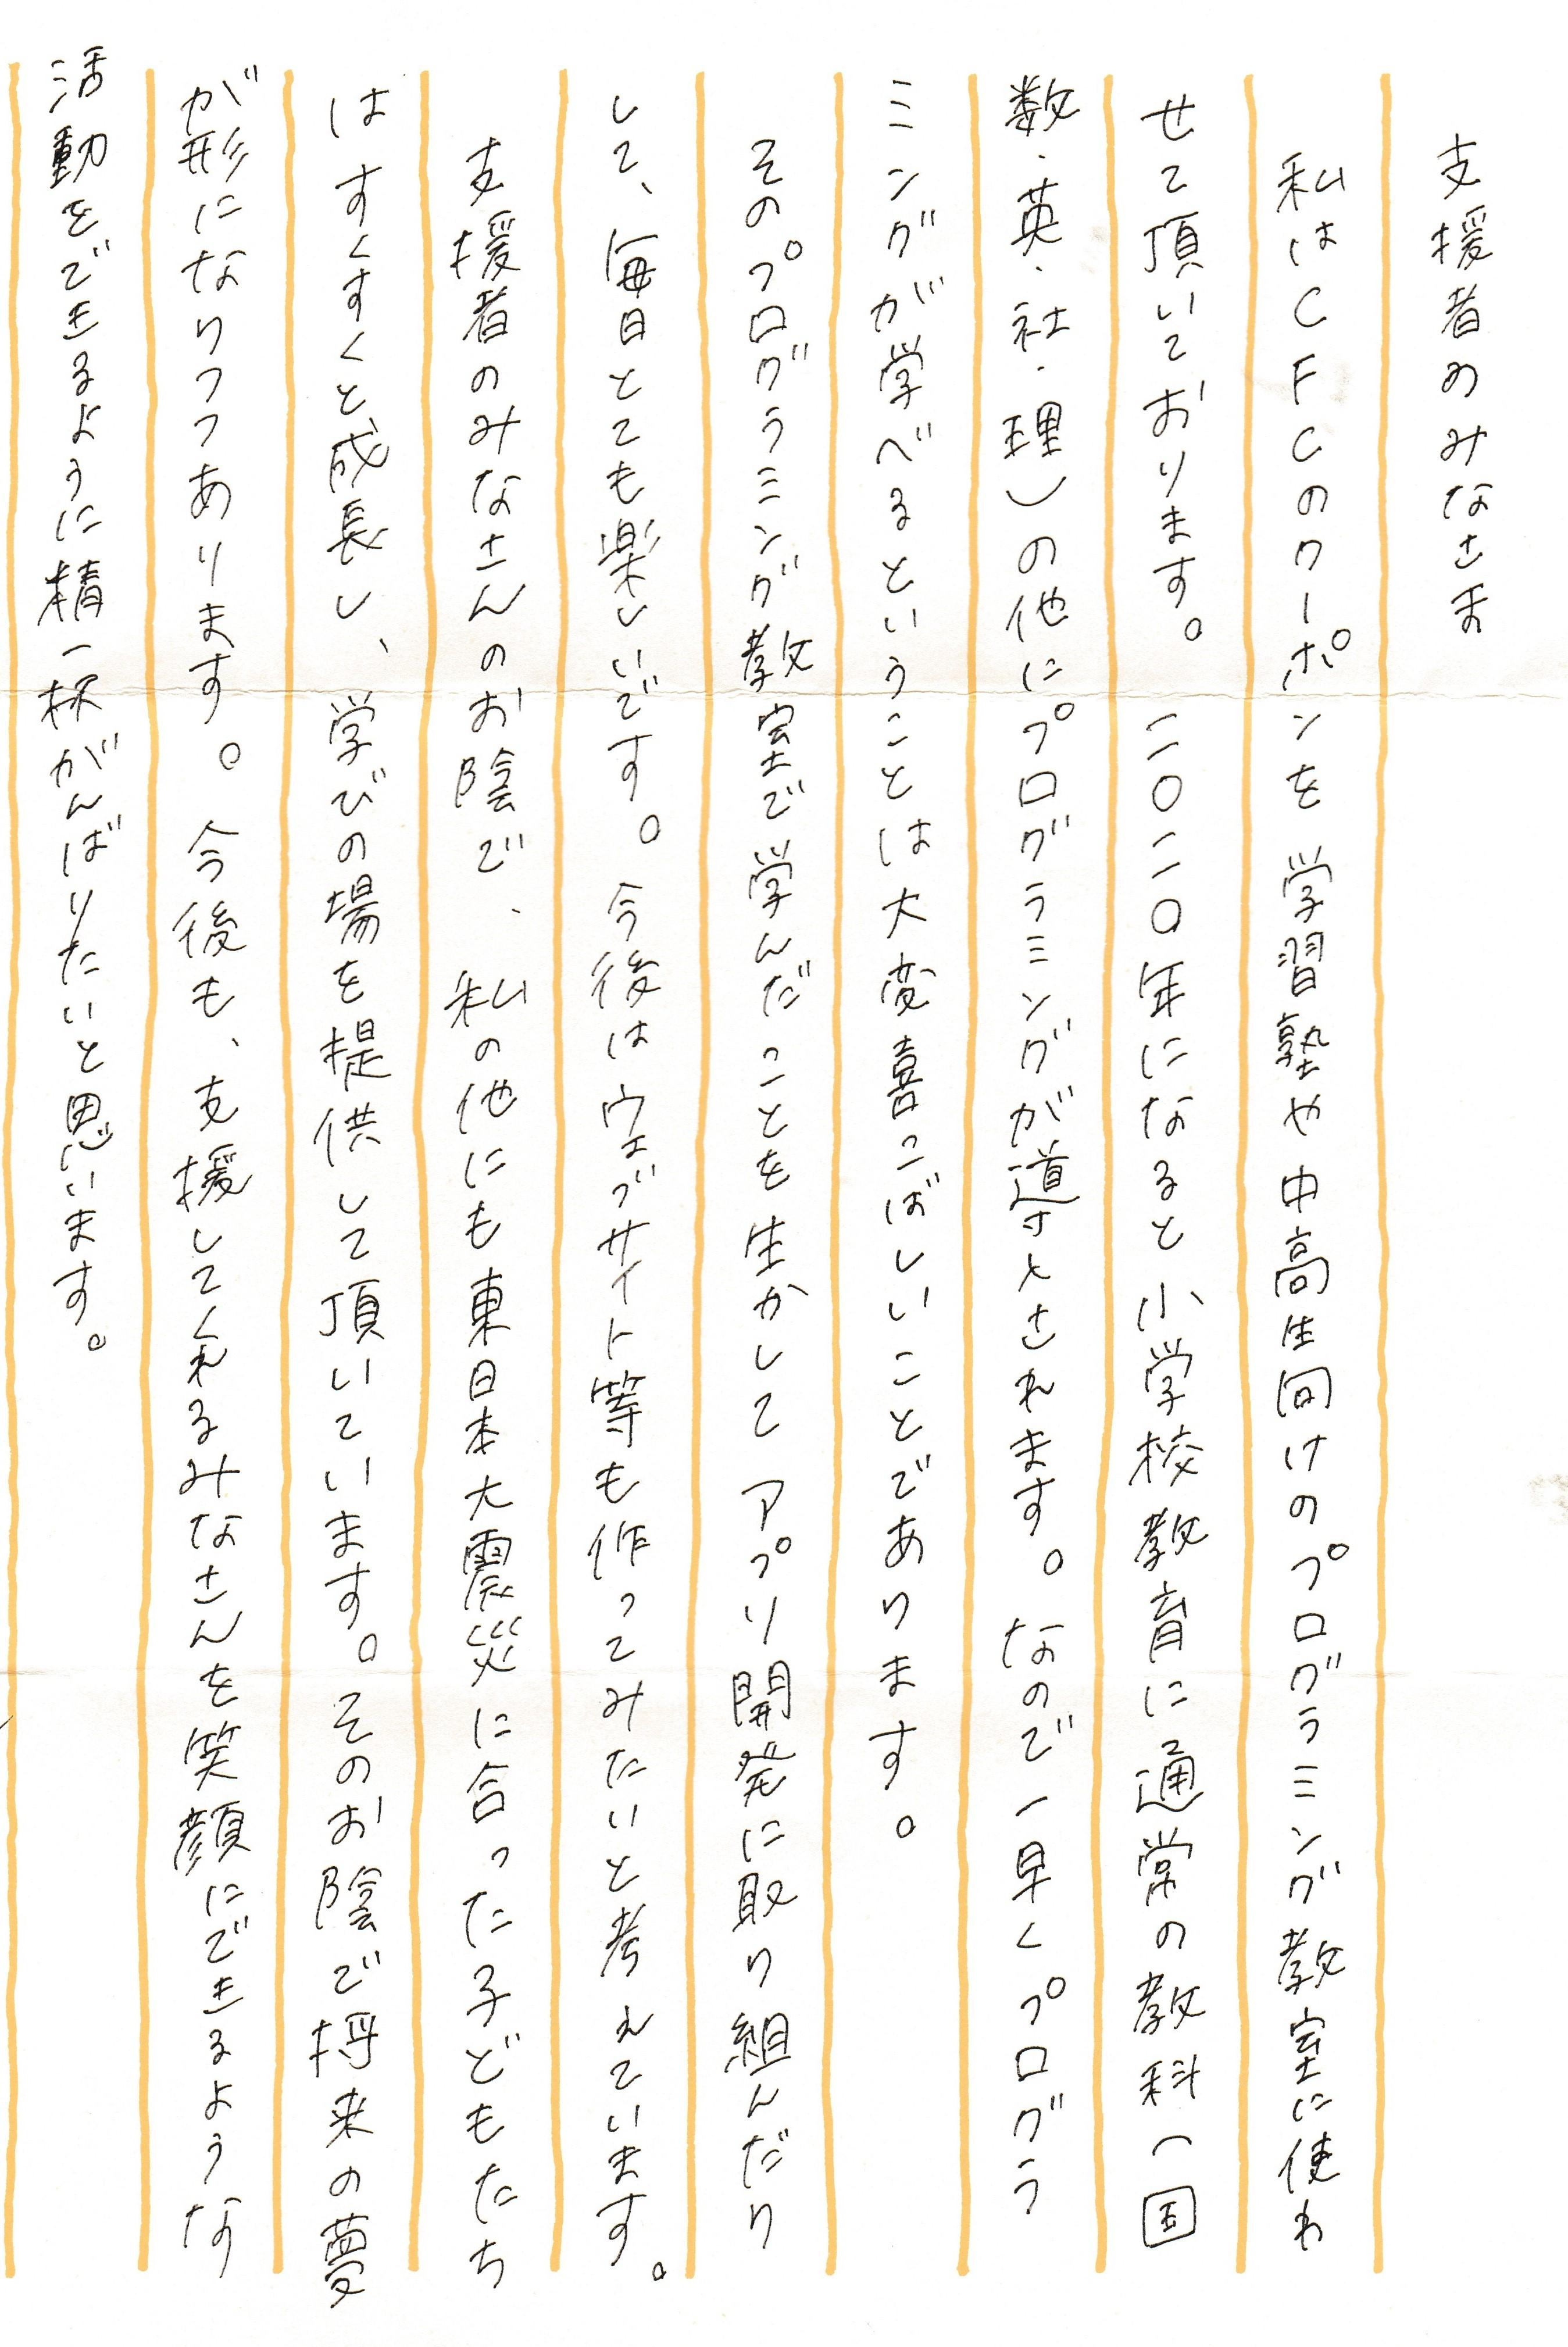 支援者のみなさま
私はCFCのクーポンを学習塾や中高生向けのプログラミング教室に使わ
せて頂いております。二〇二〇年になると小学校教育に通常の教科(国
数・英・社・理)の他にプログラミングが導とされます。なので一早くプログラ
ミングが学べるということは大変喜こばしいことであります。
そのプログラミング教室で学んだことを生かしてアプリ開発に取り組んだり
して、毎日とても楽しいです。今後はウェブサイト等も作ってみたいと考えています。
支援者のみなさんのお陰で、私の他にも東日本大震災に合った子どもたち
はすくすくと成長し、学びの場を提供して頂いています。そのお陰で将来の夢
が形になりつつあります。今後も、支援してくれるみなさんを笑顔にできるような
活動をできるように精一杯がんばりたいと思います。